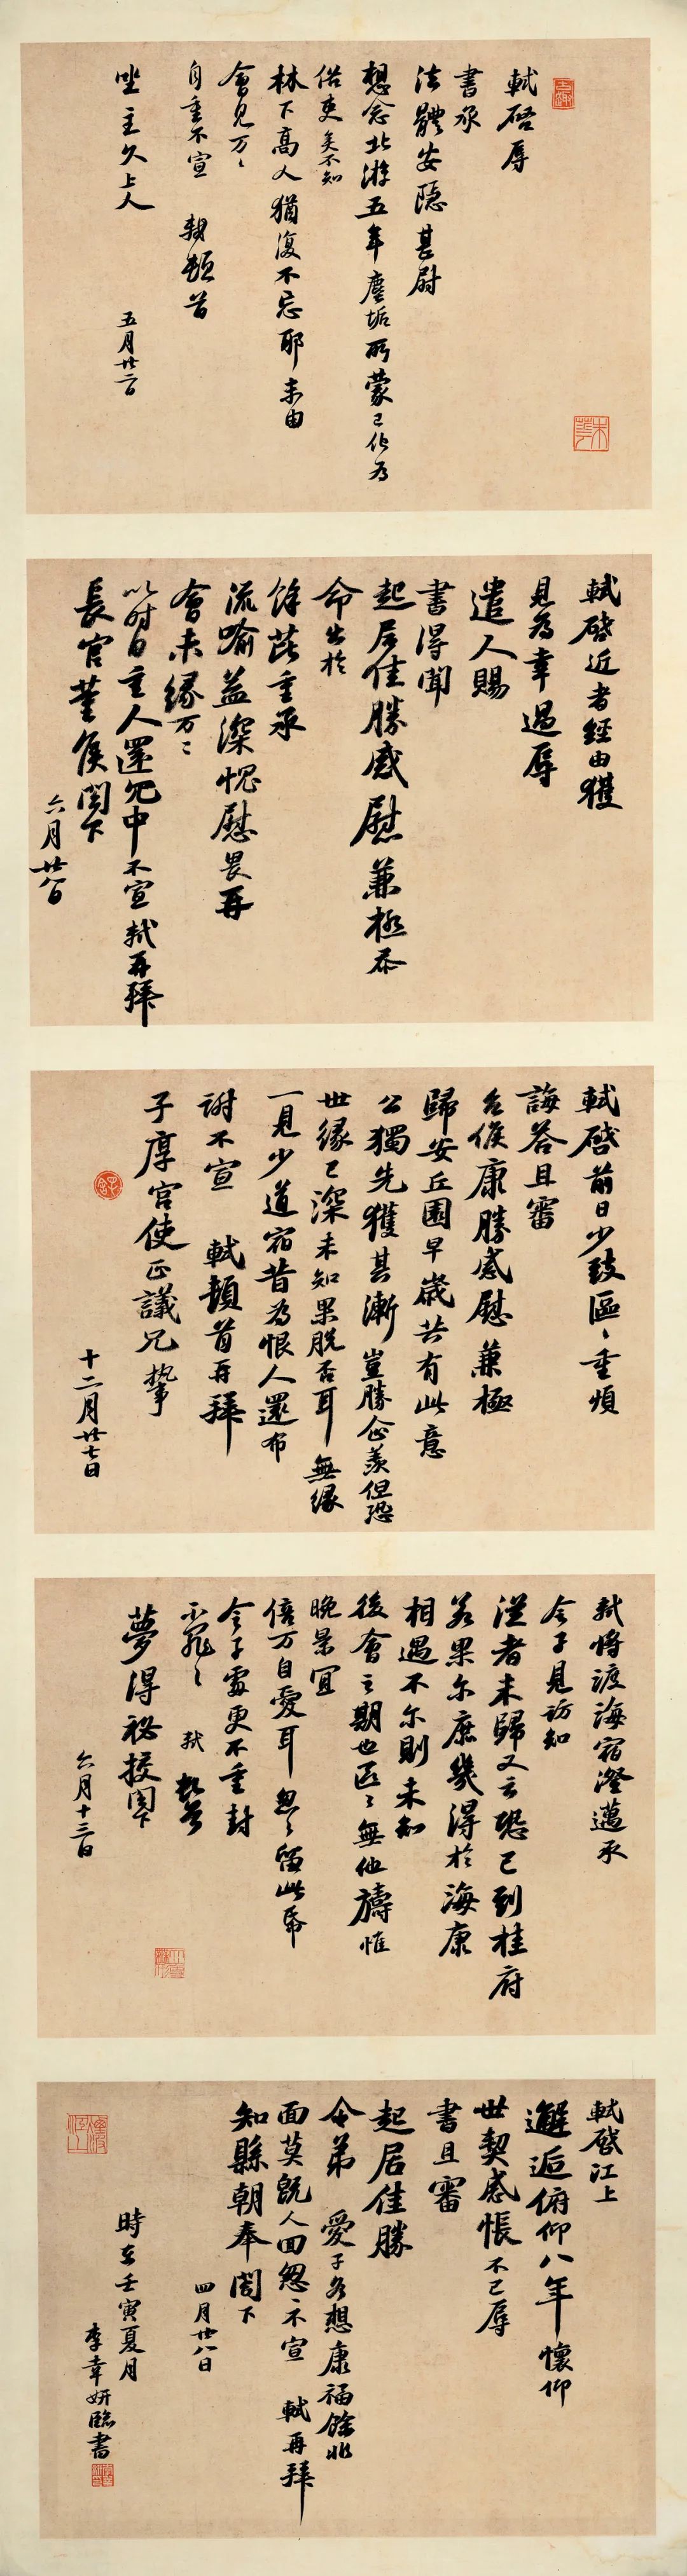 軾啓辱
書承
法體安隱甚尉
想念北游五年塵垢所蒙已化為
俗吏矣不知
林下高人猶復不忘耶未由
會見万〻
自重不宣 軾頓首
坐主久上人
五月廿二日
軾啓近者經由獲
見為幸過辱
遣人賜
書得聞
起居佳勝感慰兼極忝
命出於
餘芘重承
流喻益深愧慰畏再
會未緣万〻
以時自重人還冗中不宣軾再拜
長官董侯閤下
六月廿八日
軾啓前日少致區〻重煩
誨荅且審
台候康勝感慰兼極
歸安丘園早歲共有此意
公獨先獲其漸豈勝企羨但恐
世緣已深未知果脫否耳無緣
一見少道宿昔為恨人還布
謝不宣 軾頓首再拜
子厚宮使正議兄執事
十二月廿七日
軾將渡海宿澄邁承
令子見訪知
從者未歸又云恐已到桂府
若果尔庶幾得於海康
相遇不尔則未知
後會之期也區〻無他禱惟
晚景宜
倍万自愛耳怱〻留此帋
令子處更不重封
不罪〻 軾頓首
夢得祕校閤下
六月十三日
軾啓江上
邂逅俯仰八年懷仰
世契感悵不已辱
書且審
起居佳勝
令弟愛子各想康福餘非
面莫既人回怱〻不宣 軾再拜
知縣朝奉閤下
四月廿八日
時在壬寅夏月
李幸妍臨書